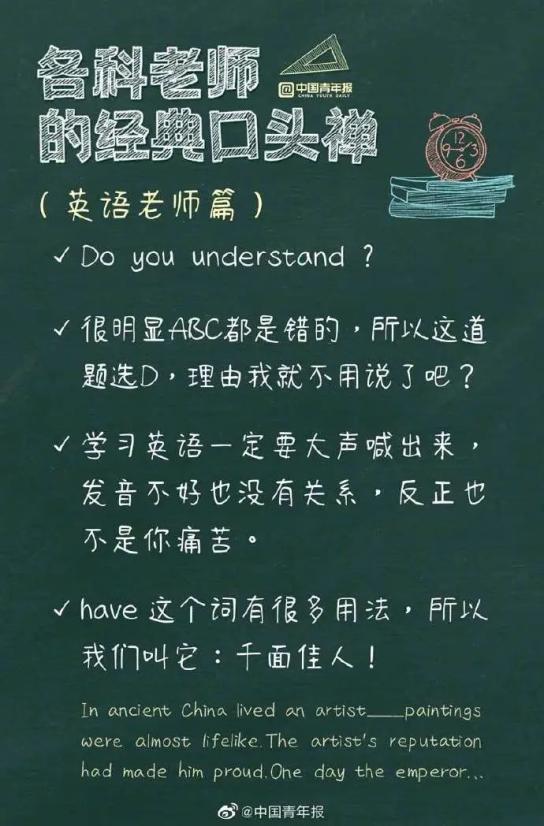 各科老师
@中国青年报
CHINA YOUTH DAILY
的经典口头禅
(英语老师篇)
12
9 3
6
✓ Do you understand ?
✓ 很明显ABC都是错的，所以这道
题选D，理由我就不用说了吧？
✓ 学习英语一定要大声喊出来，
发音不好也没有关系，反正也
不是你痛苦。
✓ have 这个词有很多用法，所以
我们叫它：千面佳人！
In ancient China lived an artist___paintings
were almost lifelike.The artist's reputation
had made him proud.One day the emperor...
@中国青年报